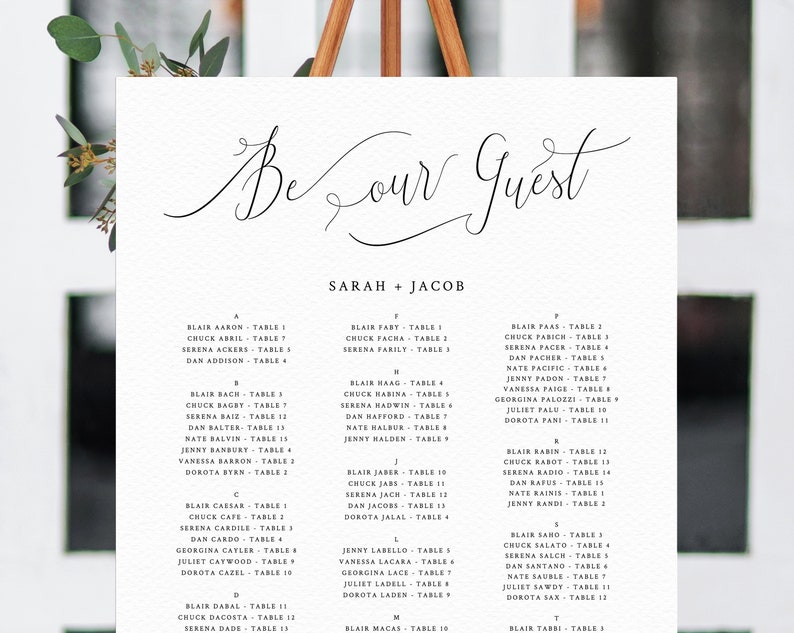 Be our Guest
SARAH + JACOB
A
BLAIR AARON - TABLE 1
CHUCK ABRIL - TABLE 7
SERENA ACKERS - TABLE 5
DAN ADDISON - TABLE 4
B
BLAIR BACH - TABLE 3
CHUCK BAGBY - TABLE 7
SERENA BAIZ - TABLE 12
DAN BALTER - TABLE 13
NATE BALVIN - TABLE 15
JENNY BANBURY - TABLE 4
VANESSA BARRON - TABLE 2
DOROTA BYRN - TABLE 2
C
BLAIR CAESAR - TABLE 1
CHUCK CAFE - TABLE 2
SERENA CARDILE - TABLE 3
DAN CARDO - TABLE 4
GEORGINA CAYLER - TABLE 8
JULIET CAYWOOD - TABLE 9
DOROTA CAZEL - TABLE 10
D
BLAIR DABAL - TABLE 11
CHUCK DACOSTA - TABLE 12
SERENA DADE - TABLE 13
F
BLAIR FABY - TABLE 1
CHUCK FACHA - TABLE 2
SERENA FARILY - TABLE 3
H
BLAIR HAAG - TABLE 4
CHUCK HABINA - TABLE 5
SERENA HADWIN - TABLE 6
DAN HAFFORD - TABLE 7
NATE HALBUR - TABLE 8
JENNY HALDEN - TABLE 9
J
BLAIR JABER - TABLE 10
CHUCK JABS - TABLE 11
SERENA JACH - TABLE 12
DAN JACOBS - TABLE 13
DOROTA JALAL - TABLE 4
L
JENNY LABELLO - TABLE 5
VANESSA LACARA - TABLE 6
GEORGINA LACE - TABLE 7
JULIET LADELL - TABLE 8
DOROTA LADEN - TABLE 9
M
BLAIR MACAS - TABLE 10
P
BLAIR PAAS - TABLE 2
CHUCK PABICH - TABLE 3
SERENA PACER - TABLE 4
DAN PACHER - TABLE 5
NATE PACIFIC - TABLE 6
JENNY PADON - TABLE 7
VANESSA PAIGE - TABLE 8
GEORGINA PALOZZI - TABLE 9
JULIET PALU - TABLE 10
DOROTA PANI - TABLE 11
R
BLAIR RABIN - TABLE 12
CHUCK RABOT - TABLE 13
SERENA RADIO - TABLE 14
DAN RAFUS - TABLE 15
NATE RAINIS - TABLE 1
JENNY RANDI - TABLE 2
S
BLAIR SAHO - TABLE 3
CHUCK SALATO - TABLE 4
SERENA SALCH - TABLE 5
DAN SANTANO - TABLE 6
NATE SAUBLE - TABLE 7
JULIET SAWDY - TABLE 11
DOROTA SAX - TABLE 12
T
BLAIR TABBI - TABLE 3